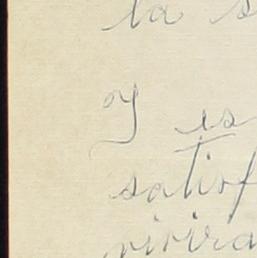 la s
y es
satisf
vivira